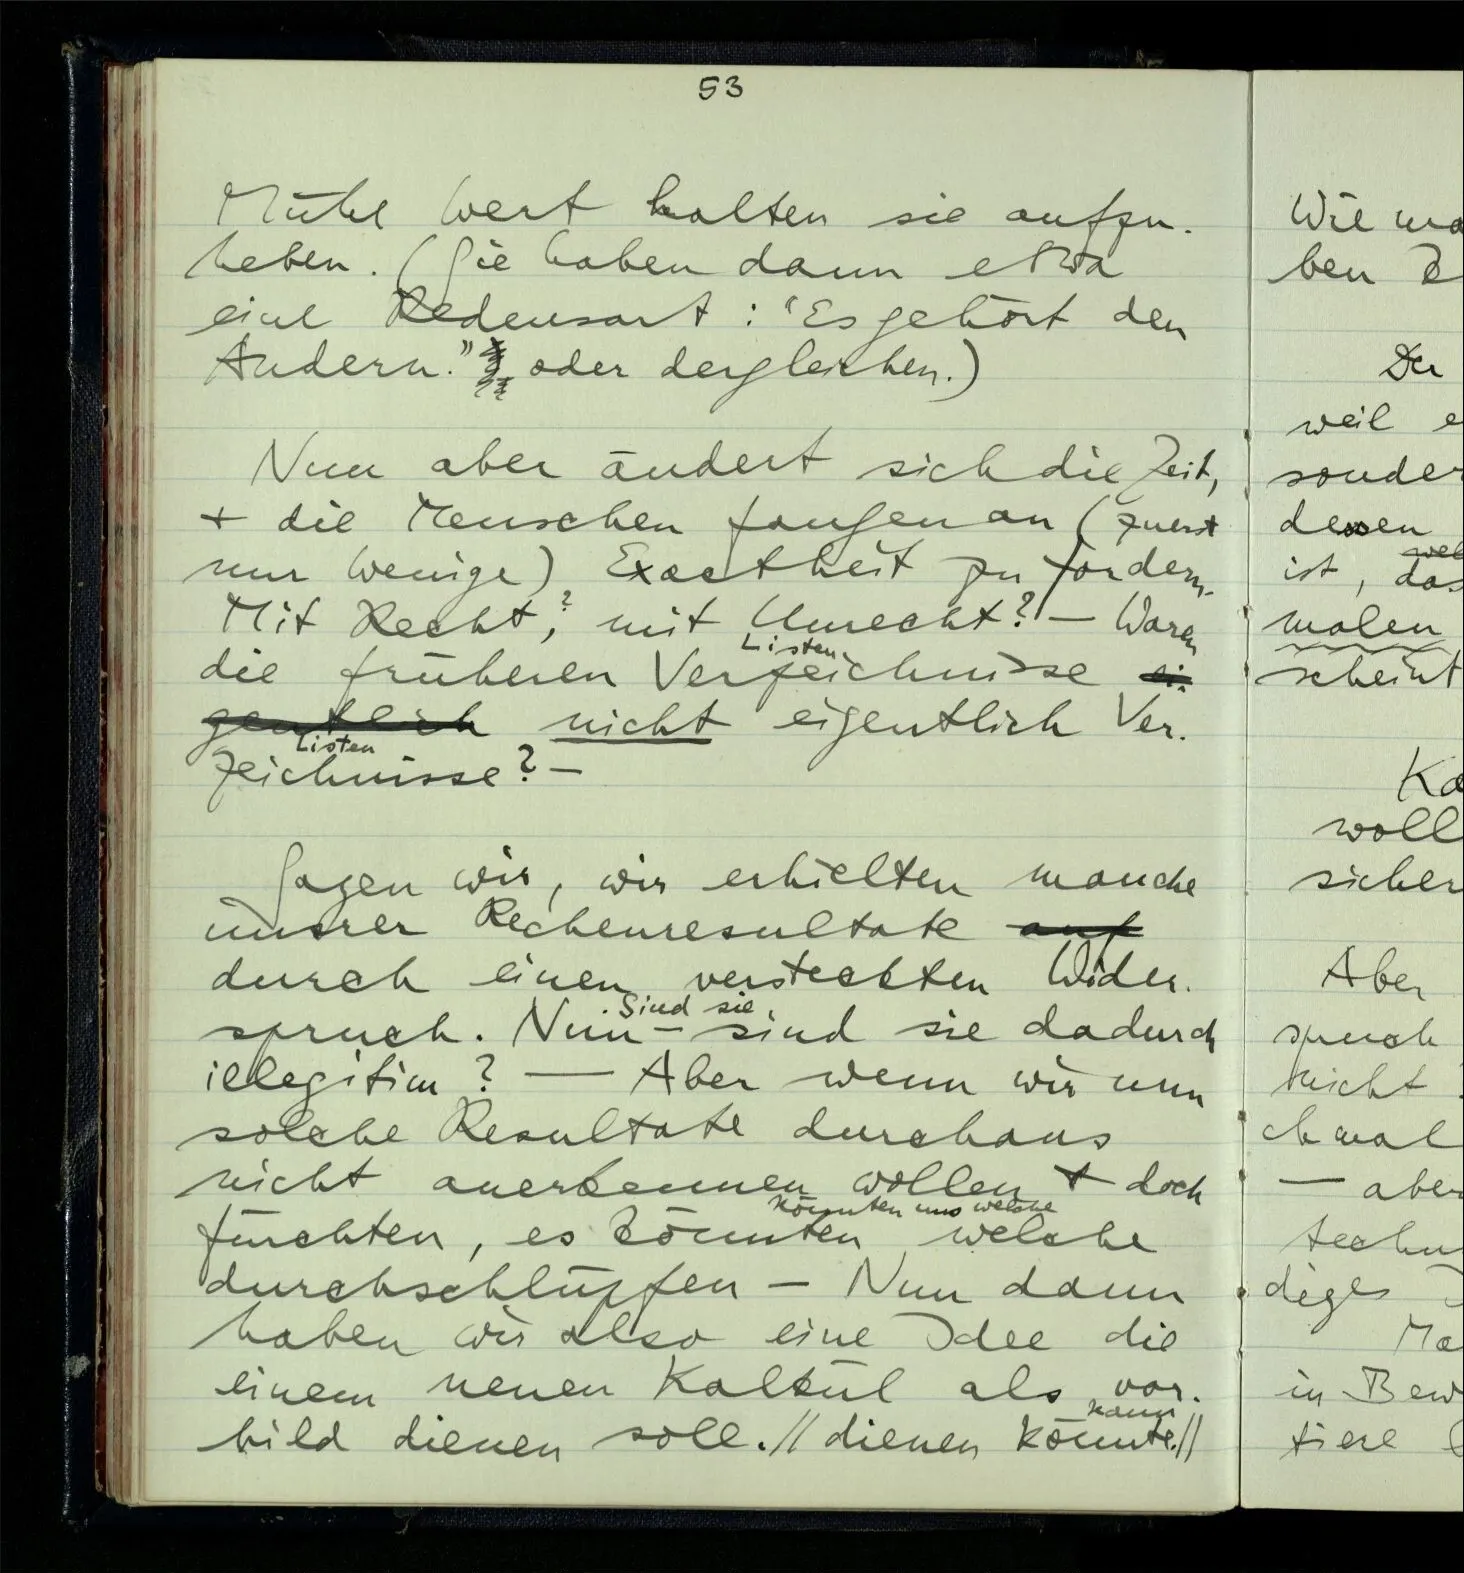 53
Mühe wert halten sie aufzu-
heben. (Sie haben dann etwa
eine Redensart: "Es gehört den
Andern." oder dergleichen.)
Nun aber ändert sich die Zeit,
+ die Menschen fangen an (zuerst
nur Wenige) Exactheit zu fordern.
Mit Recht,? mit Unrecht? — Waren
Listen
die früheren Verzeichnisse ei-
gentlich nicht eigentlich Ver-
Listen
zeichnisse? —
Sagen wir, wir erhielten manche
unsrer Rechenresultate auf
durch einen versteckten Wider-
Sind sie
spruch. Nun – sind sie dadurch
illegitim? — Aber wenn wir nun
solche Resultate durchaus
nicht anerkennen wollen + doch
könnten uns welche
fürchten, es könnten welche
durchschlüpfen – Nun dann
haben wir also eine Idee die
einem neuen Kalkül als vor-
kann
bild dienen soll. // dienen könnte. //
Wie
ben
Der
weil
dessen
ist, das
malen
scheint
Aber
spruch
nicht
— aber
in